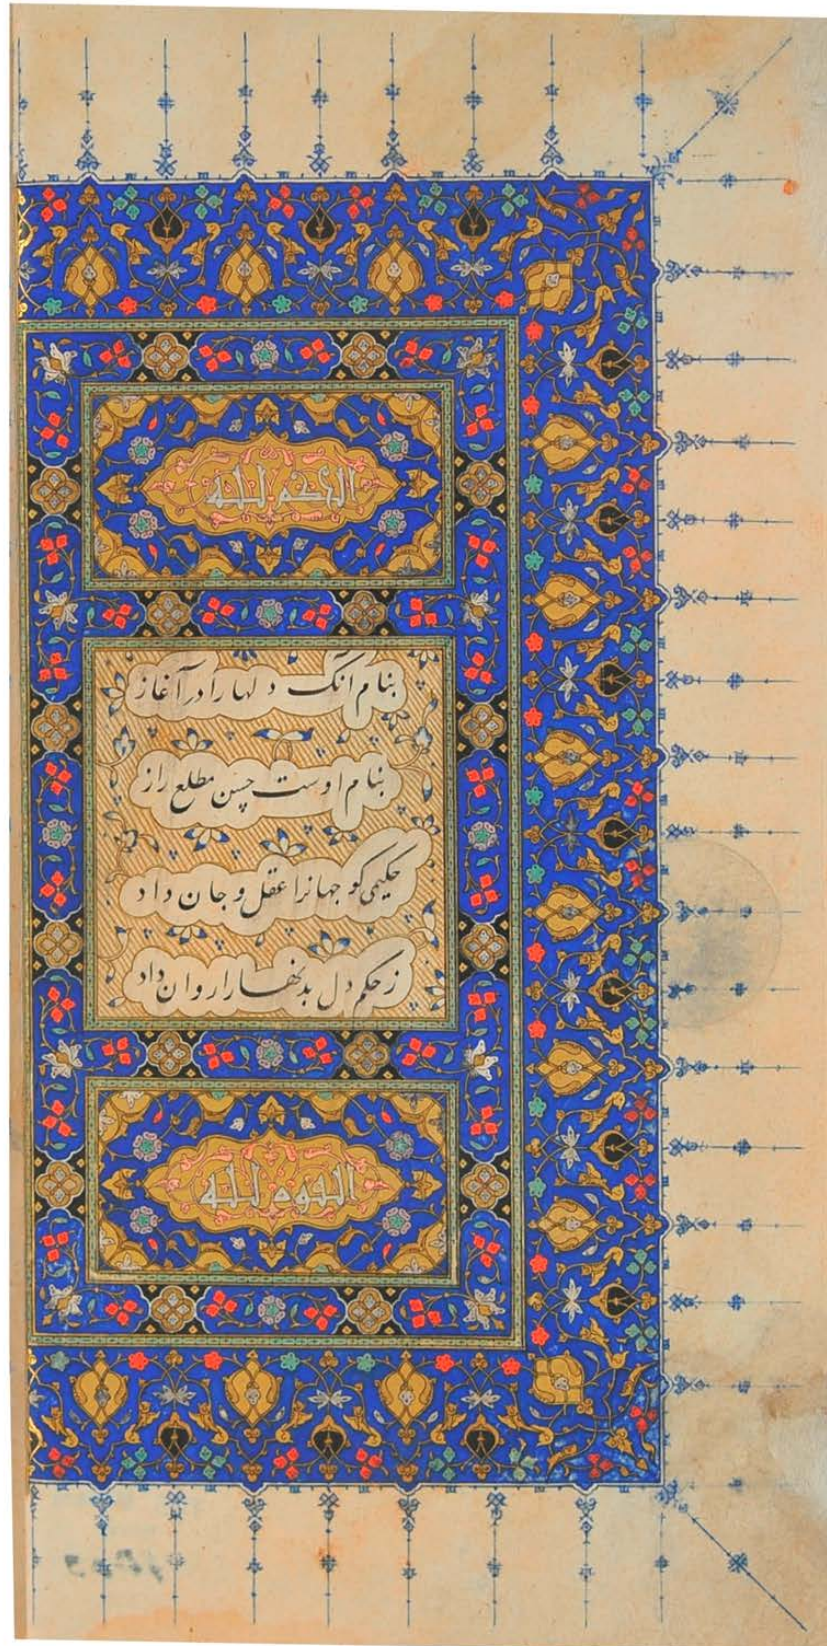 الحکم لله
بنام آنک دلها را در آغاز
بنام اوست حسن مطلع راز
حکیمی کو جهانرا عقل و جان داد
ز حکم دل بدنها را روان داد
لله